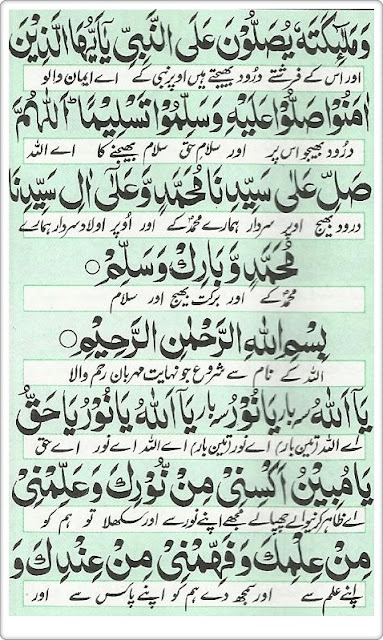 وَمَلٰٓئِكَتَهٗ يُصَلُّوْنَ عَلَى النَّبِيِّ يٰٓاَيُّهَا الَّذِيْنَ
اور اس کے فرشتے درود بھیجتے ہیں اوپر نبی کے اے ایمان والو
اٰمَنُوْا صَلُّوْا عَلَيْهِ وَسَلِّمُوْا تَسْلِيْمًا ط اَللّٰهُمَّ
درود بھیجو اس پر اور سلام حق سلام بھیجنے کا اے اللہ
صَلِّ عَلٰى سَيِّدِنَا مُحَمَّدٍ وَّعَلٰٓى اٰلِ سَيِّدِنَا
درود بھیج اوپر سردار ہمارے محمدؐ کے اور اوپر اولاد سردار ہمارے
مُحَمَّدٍ وَّبَارِكْ وَسَلِّمْ ○
محمدؐ کے اور برکت بھیج اور سلام
بِسْمِ اللهِ الرَّحْمٰنِ الرَّحِيْمِ ○
اللہ کے نام سے شروع جو نہایت مہربان رحم والا
يَآ اَللّٰهُ سہ بار يَا نُوْرُ سہ بار يَآ اَللّٰهُ يَا نُوْرُ يَا حَقُّ
اے اللہ (تین بار) اے نور (تین بار) اے اللہ اے نور اے حق
يَا مُبِيْنُ اَكْسِنِىْ مِنْ نُّوْرِكَ وَعَلِّمْنِىْ
اے ظاہر کرنیوالے چھپا لے مجھے اپنے نور سے اور سکھلا تو ہم کو
مِنْ عِلْمِكَ وَفَهِّمْنِىْ مِنْ عِنْدِكَ وَ
اپنے علم سے اور سمجھ دے ہم کو اپنے پاس سے اور